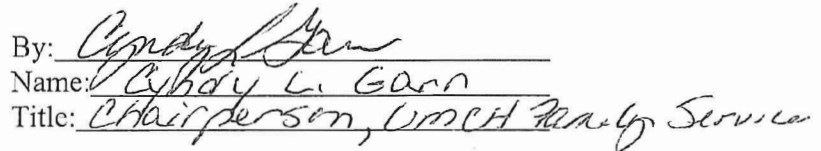 By: Cyndy L Gann
Name: Cyndy L. Gann
Title: Chairperson, UMCH Family Service